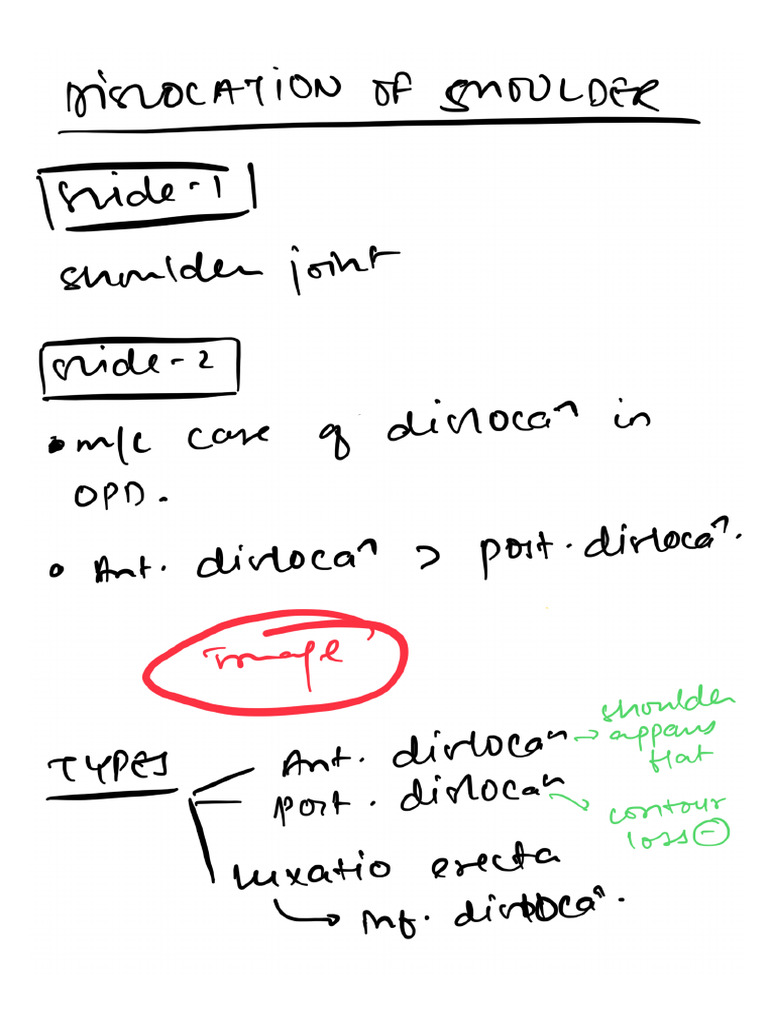 DISLOCATION OF SHOULDER
Slide-1
shoulder joint
Slide-2
• m/c case of dislocaⁿ in
OPD.
• Ant. dislocaⁿ > post. dislocaⁿ.
Image
TYPES
Ant. dislocaⁿ → shoulder
appears
flat
post. dislocaⁿ → contour
loss ⊖
luxatio erecta
↳ Inf. dislocaⁿ.